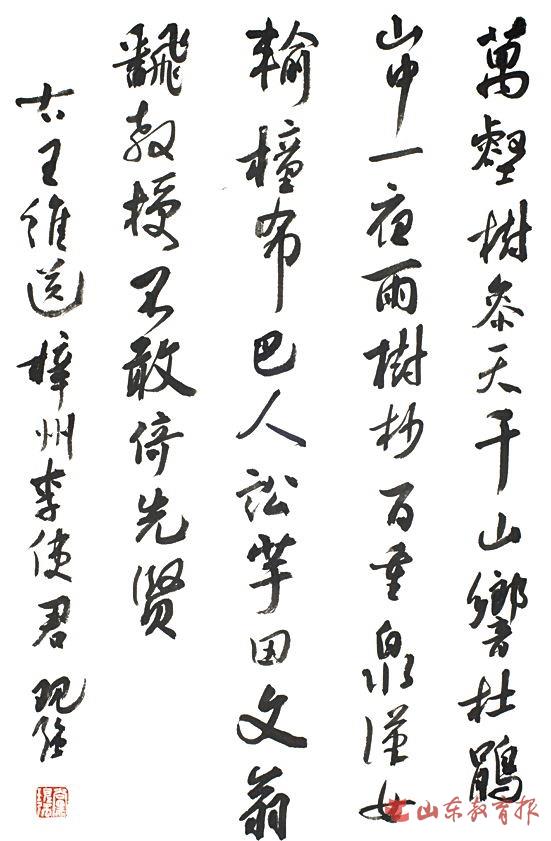 萬壑樹参天千山響杜鵑
山中一夜雨樹杪百重泉漢女
輸橦布巴人訟芋田文翁
飜教授不敢倚先贤
右王維送梓州李使君
山东教育报